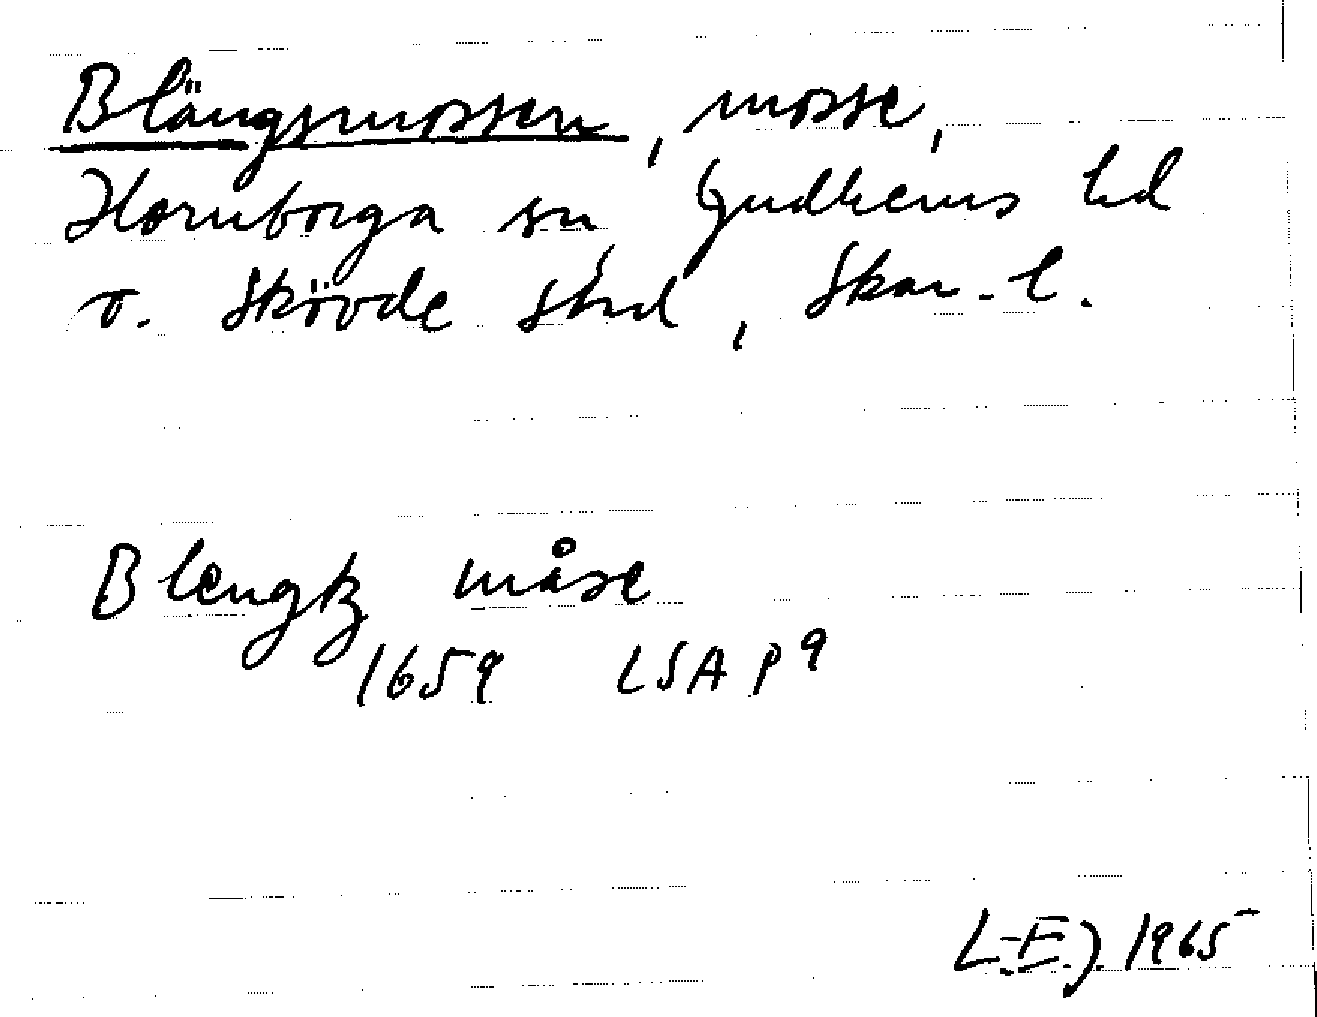 Blängsmossen, mosse,
Hornborga sn, Gudhems hd
o. Skövde shd, Skar. l.
Blengtz måse
1659 LSA P 9
L-E.J. 1965